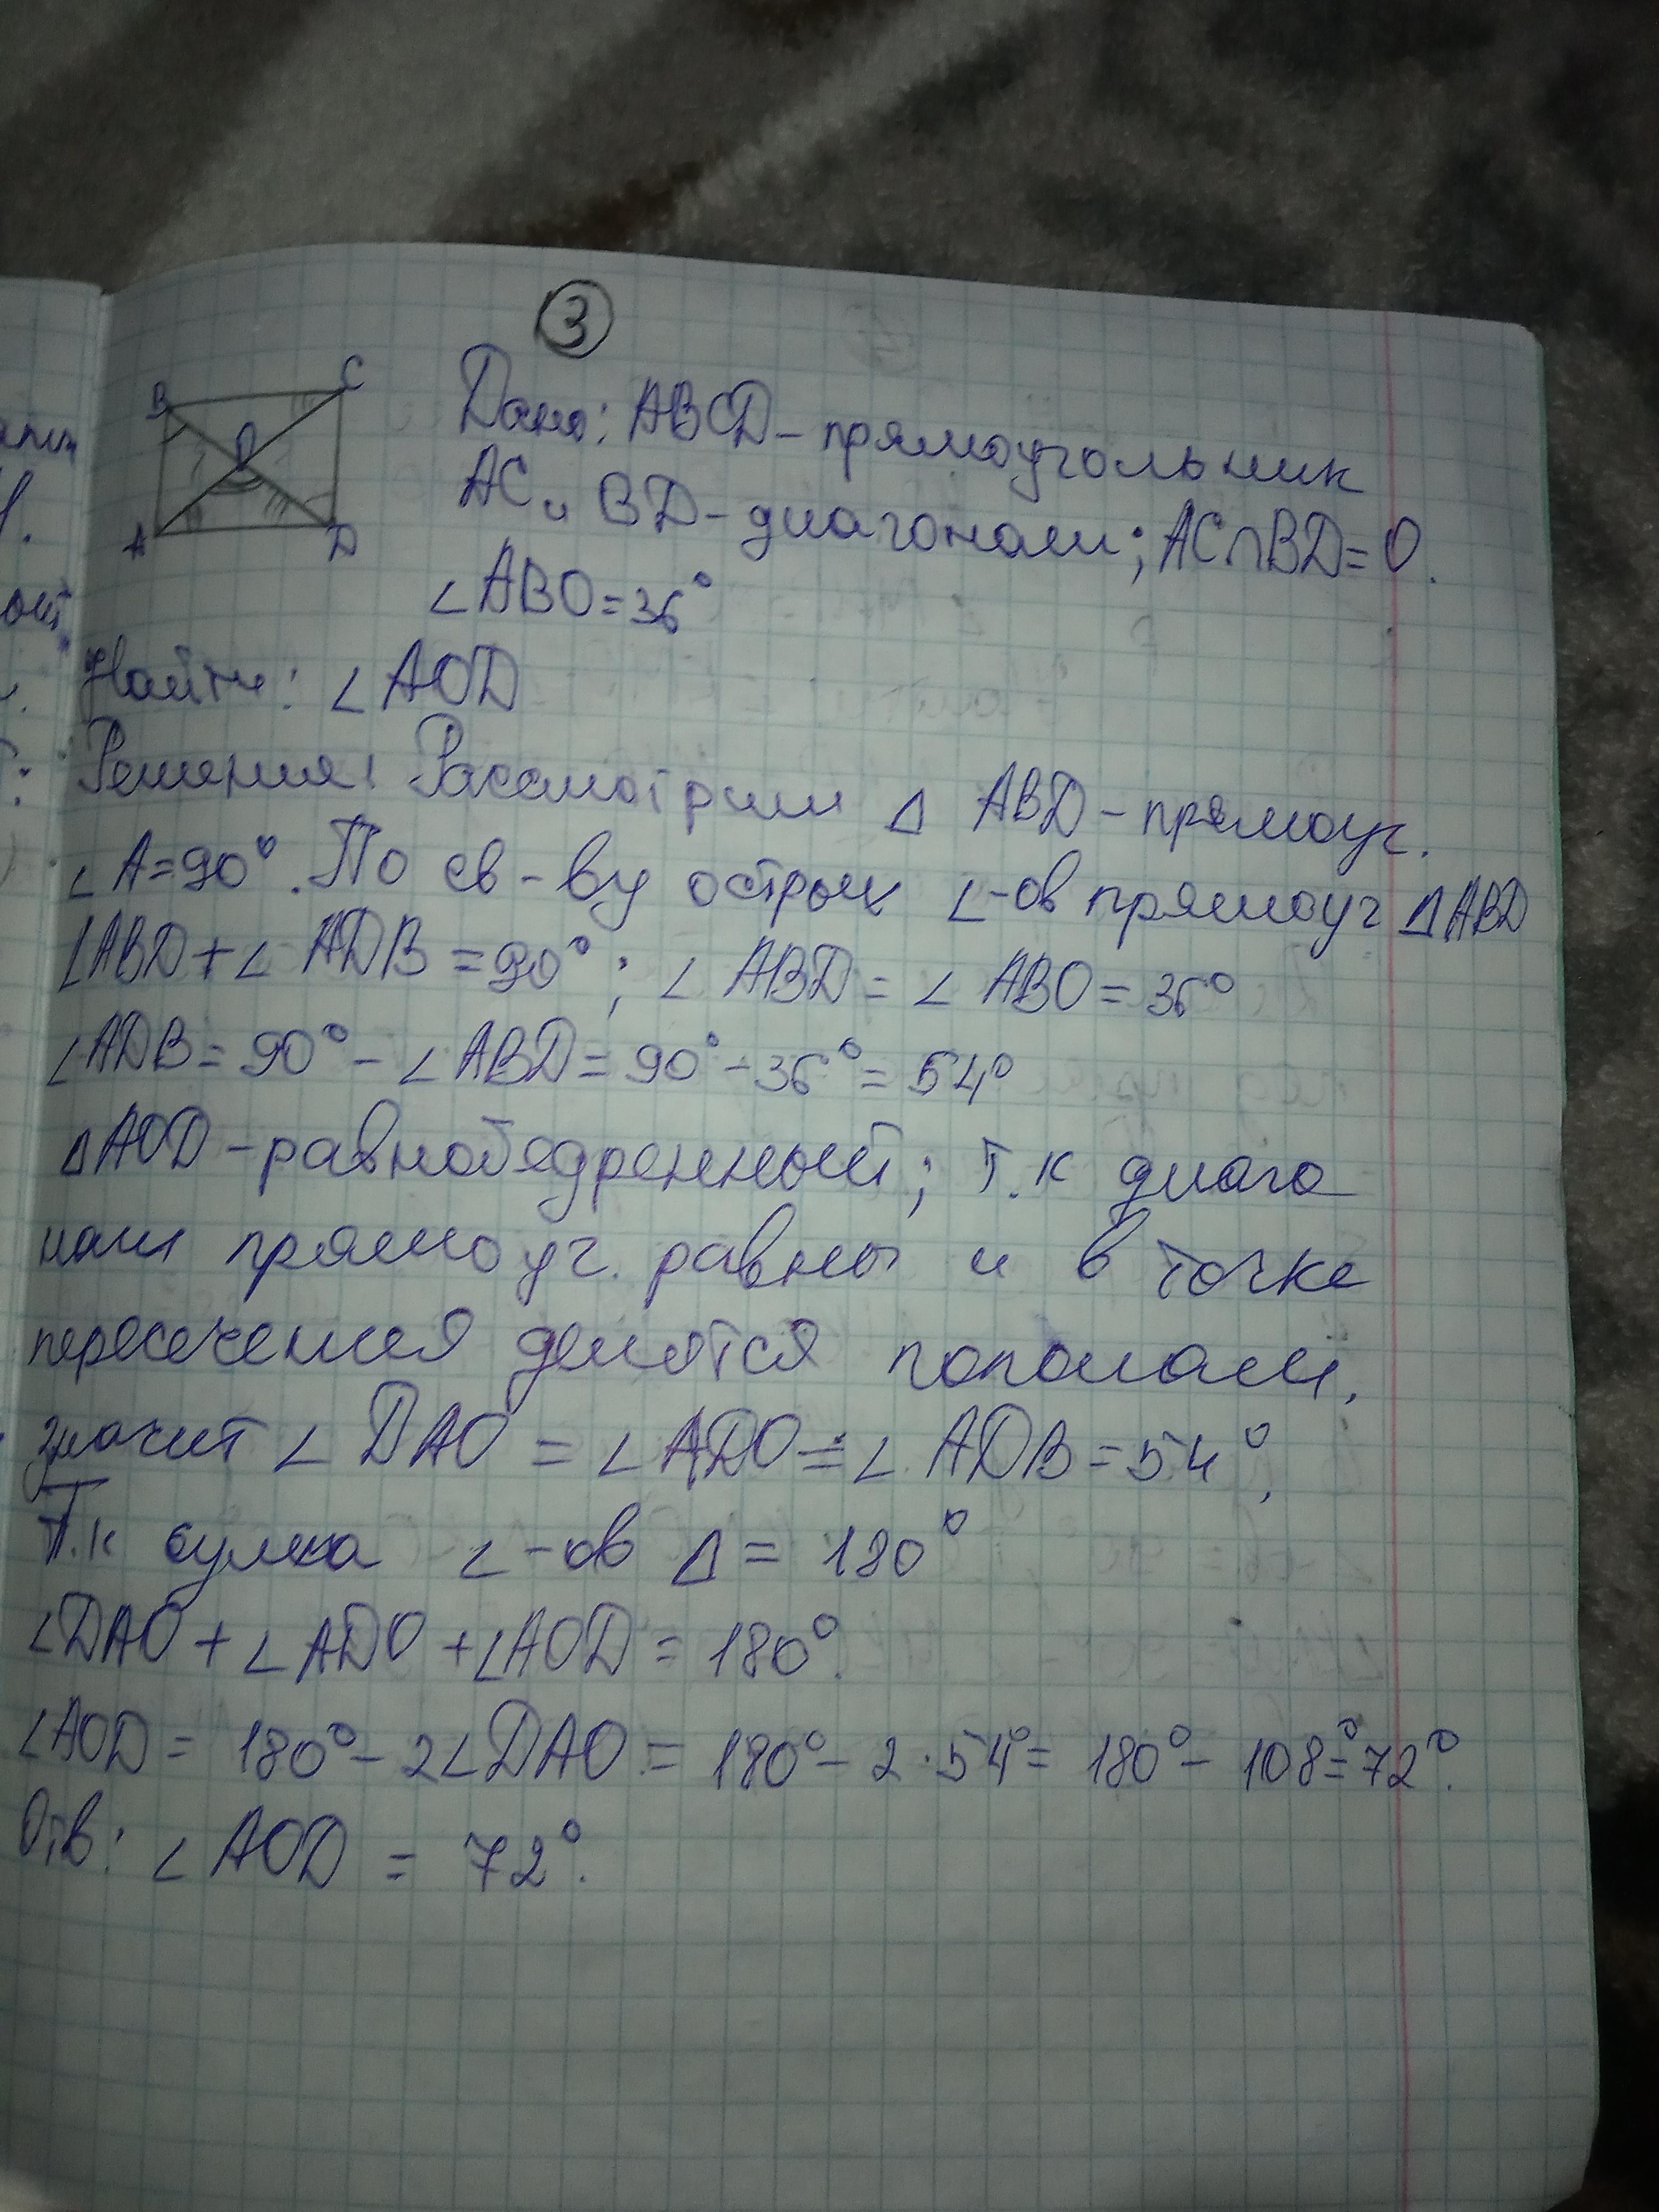 3
B C
O
A D
Дано: ABCD - прямоугольник
AC и BD - диагонали; AC∩BD=O.
∠ABO=36°
Найти: ∠AOD
Решения: Рассмотрим △ ABD - прямоуг.
∠A=90°. По св-ву острых ∠-ов прямоуг △ABD
∠ABD+∠ADB=90°; ∠ABD=∠ABO=36°
∠ADB=90°-∠ABD=90°-36°=54°
△AOD - равнобедренный; т.к диаго
нали прямоуг. равны и в точке
пересечения делятся пополам,
значит ∠DAO=∠ADO=∠ADB=54°,
Т.к сумма ∠-ов △=180°
∠DAO+∠ADO+∠AOD=180°.
∠AOD=180°-2∠DAO=180°-2·54°=180°-108°=72°.
Отв: ∠AOD=72°.